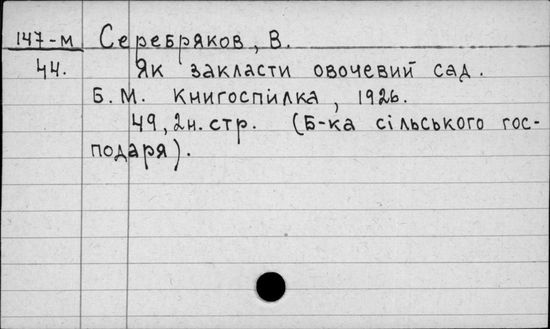 147-м Серебряков, В.
44. Як закласти овочевий сад.
Б.М. Книгоспілка, 1926.
49, 2н.стр. (Б-ка сільського гос-
подаря).